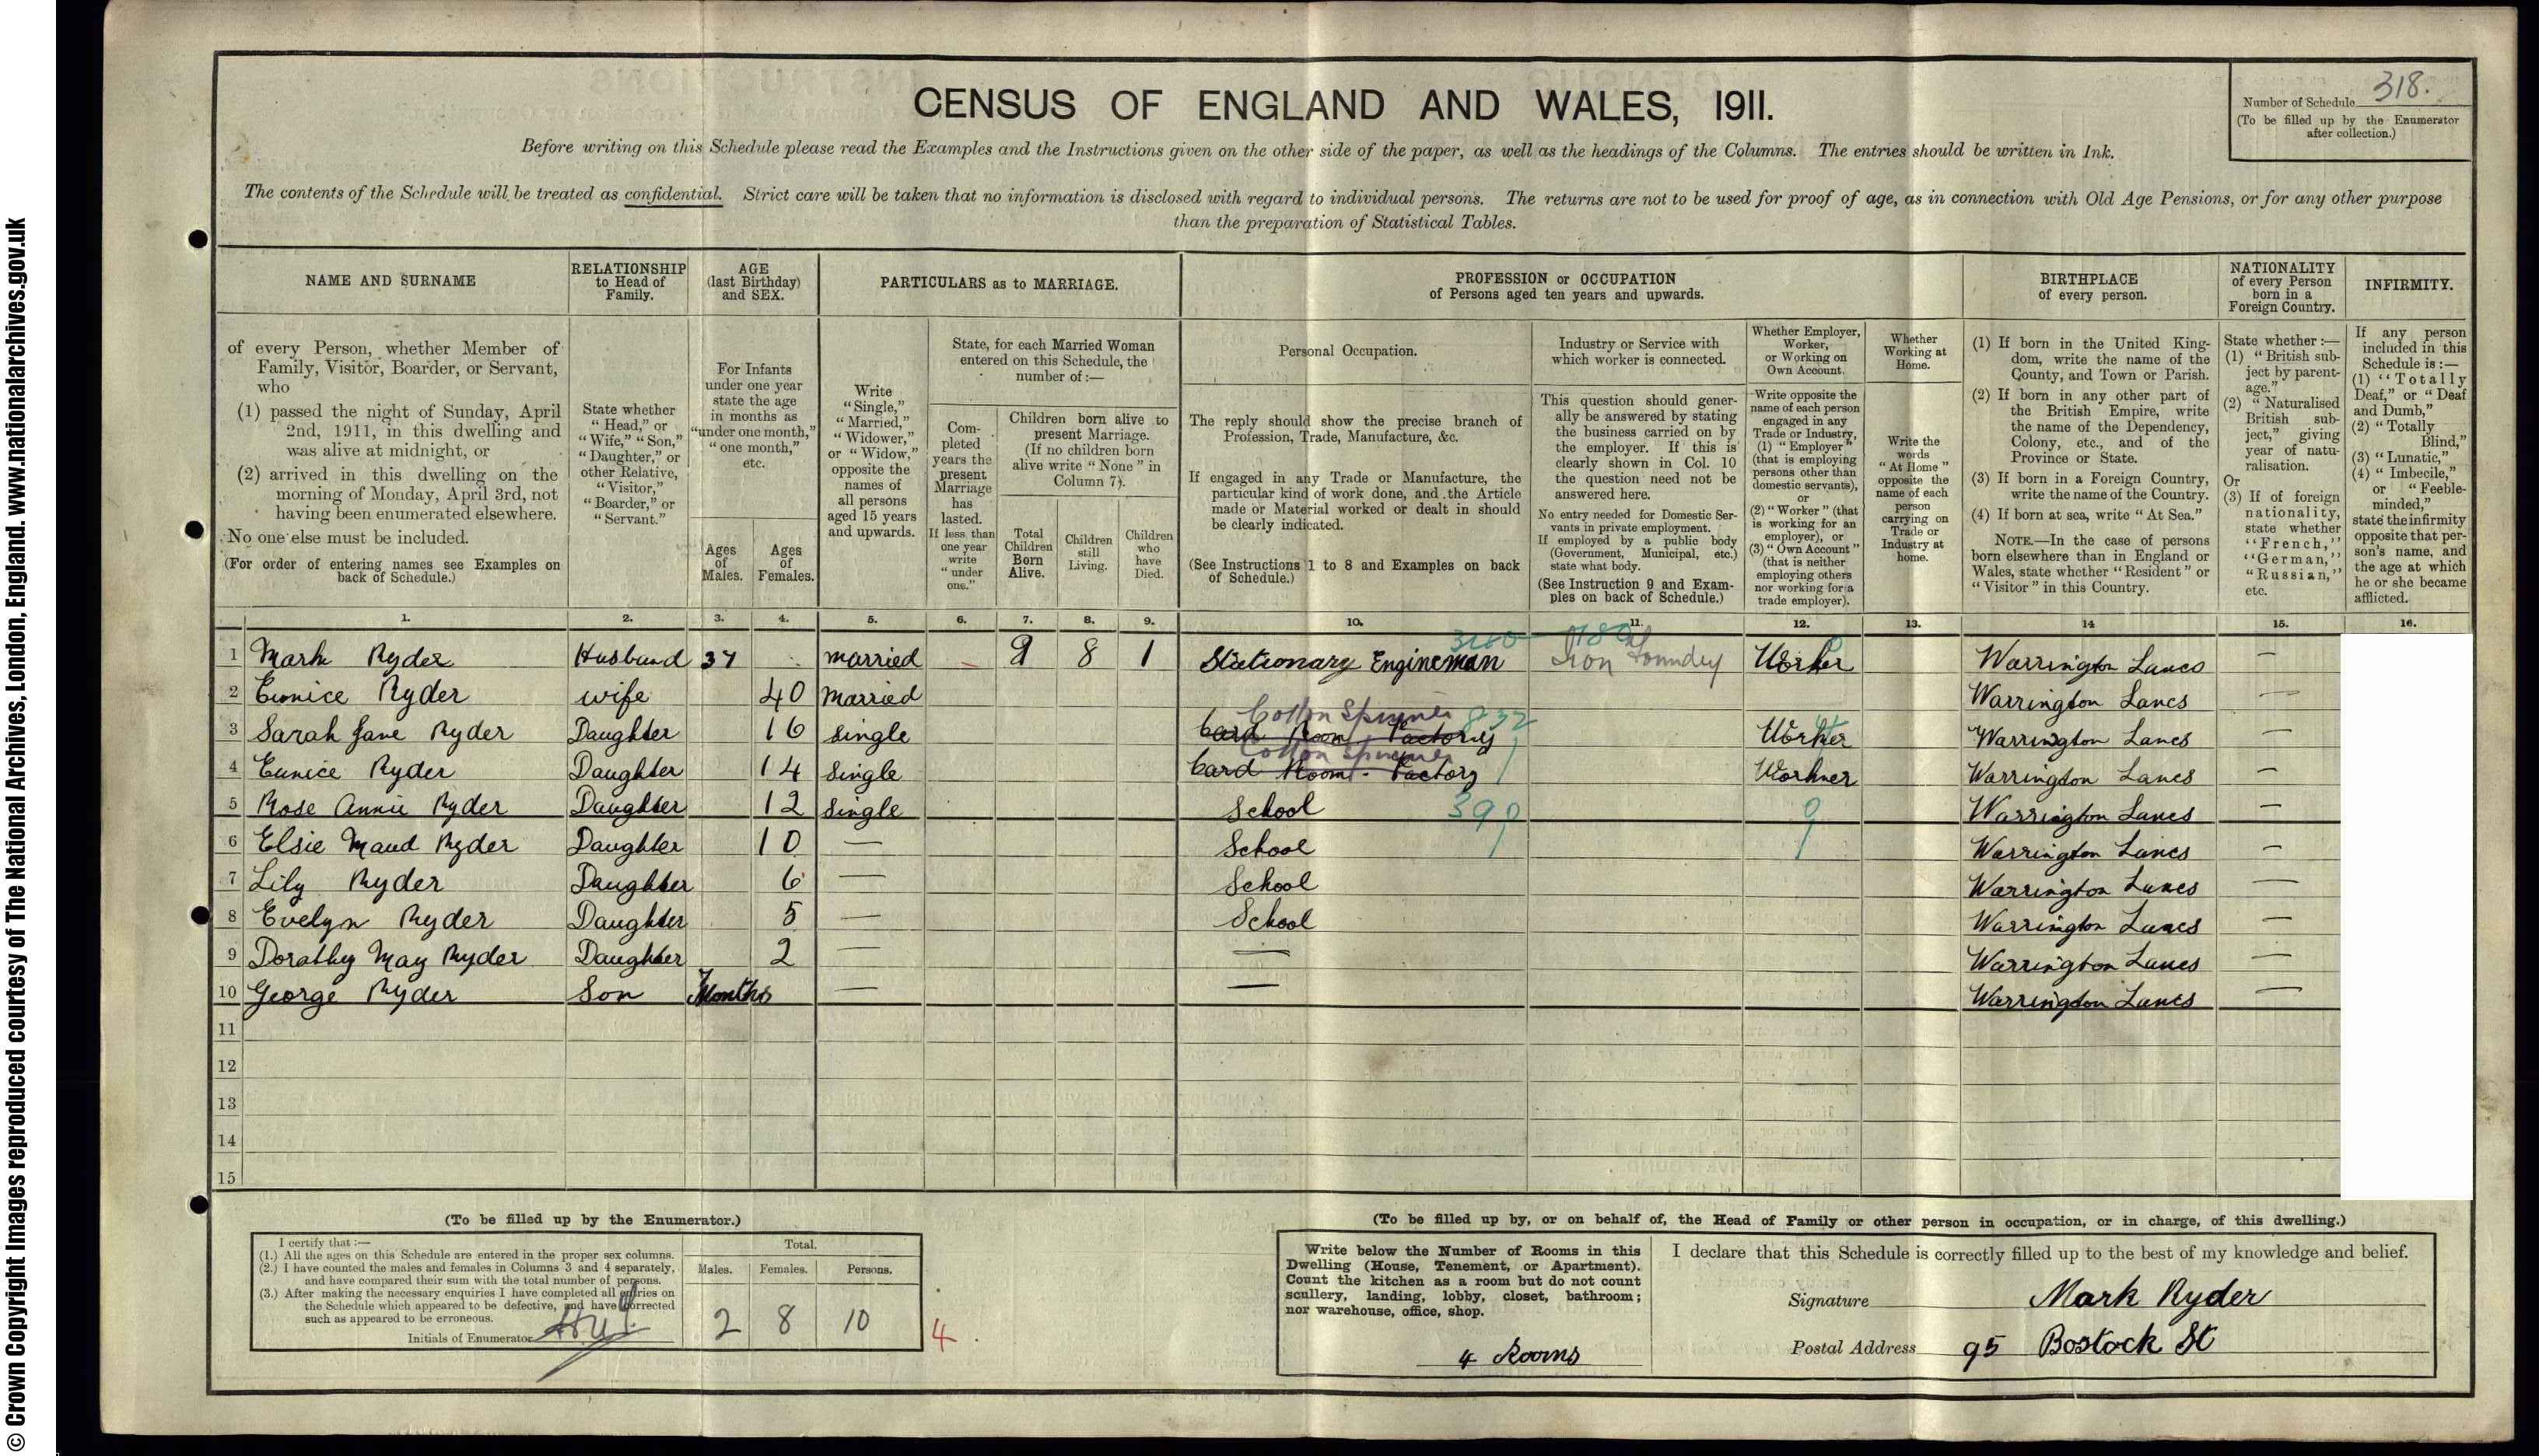 © Crown Copyright Images reproduced courtesy of The National Archives, London, England. www.nationalarchives.gov.uk
CENSUS OF ENGLAND AND WALES, 1911.
Number of Schedule 318.
(To be filled up by the Enumerator
after collection.)
Before writing on this Schedule please read the Examples and the Instructions given on the other side of the paper, as well as the headings of the Columns. The entries should be written in Ink.
The contents of the Schedule will be treated as confidential. Strict care will be taken that no information is disclosed with regard to individual persons. The returns are not to be used for proof of age, as in connection with Old Age Pensions, or for any other purpose
than the preparation of Statistical Tables.
NAME AND SURNAME
of every Person, whether Member of
Family, Visitor, Boarder, or Servant,
who
(1) passed the night of Sunday, April
2nd, 1911, in this dwelling and
was alive at midnight, or
(2) arrived in this dwelling on the
morning of Monday, April 3rd, not
having been enumerated elsewhere.
No one else must be included.
(For order of entering names see Examples on
back of Schedule.)
RELATIONSHIP
to Head of
Family.
State whether
"Head," or
"Wife," "Son,"
"Daughter," or
other Relative,
"Visitor,"
"Boarder," or
"Servant."
AGE
(last Birthday)
and SEX.
For Infants
under one year
state the age
in months as
"under one month,"
"one month,"
etc.
Ages
of
Males.
Ages
of
Females.
PARTICULARS as to MARRIAGE.
Write
"Single,"
"Married,"
"Widower,"
or "Widow,"
opposite the
names of
all persons
aged 15 years
and upwards.
State, for each Married Woman
entered on this Schedule, the
number of:—
Com-
pleted
years the
present
Marriage
has
lasted.
If less than
one year
write
"under
one."
Children born alive to
present Marriage.
(If no children born
alive write "None" in
Column 7).
Total
Children
Born
Alive.
Children
still
Living.
Children
who
have
Died.
PROFESSION or OCCUPATION
of Persons aged ten years and upwards.
Personal Occupation.
The reply should show the precise branch of
Profession, Trade, Manufacture, &c.
If engaged in any Trade or Manufacture, the
particular kind of work done, and the Article
made or Material worked or dealt in should
be clearly indicated.
(See Instructions 1 to 8 and Examples on back
of Schedule.)
Industry or Service with
which worker is connected.
This question should gener-
ally be answered by stating
the business carried on by
the employer. If this is
clearly shown in Col. 10
the question need not be
answered here.
No entry needed for Domestic Ser-
vants in private employment.
If employed by a public body
(Government, Municipal, etc.)
state what body.
(See Instruction 9 and Exam-
ples on back of Schedule.)
Whether Employer,
Worker,
or Working on
Own Account.
Write opposite the
name of each person
engaged in any
Trade or Industry,
(1) "Employer"
(that is employing
persons other than
domestic servants),
or
(2) "Worker" (that
is working for an
employer), or
(3) "Own Account"
(that is neither
employing others
nor working for a
trade employer).
Whether
Working at
Home.
Write the
words
"At Home"
opposite the
name of each
person
carrying on
Trade or
Industry at
home.
BIRTHPLACE
of every person.
(1) If born in the United King-
dom, write the name of the
County, and Town or Parish.
(2) If born in any other part of
the British Empire, write
the name of the Dependency,
Colony, etc., and of the
Province or State.
(3) If born in a Foreign Country,
write the name of the Country.
(4) If born at sea, write "At Sea."
NOTE.—In the case of persons
born elsewhere than in England or
Wales, state whether "Resident" or
"Visitor" in this Country.
NATIONALITY
of every Person
born in a
Foreign Country.
State whether :—
(1) "British sub-
ject by parent-
age."
(2) "Naturalised
British sub-
ject," giving
year of natu-
ralisation.
Or
(3) If of foreign
nationality,
state whether
"French,"
"German,"
"Russian,"
etc.
INFIRMITY.
If any person
included in this
Schedule is :—
(1) "Totally
Deaf," or "Deaf
and Dumb,"
(2) "Totally
Blind,"
(3) "Lunatic,"
(4) "Imbecile,"
or "Feeble-
minded,"
state the infirmity
opposite that per-
son's name, and
the age at which
he or she became
afflicted.
1. 2. 3. 4. 5. 6. 7. 8. 9. 10. 11. 12. 13. 14 15. 16.
3180 780
1 Mark Ryder Husband 37 married 9 8 1 Stationary Engineman Iron Foundry Worker Warrington Lancs —
2 Eunice Ryder wife 40 Married Warrington Lancs —
Cotton Spinner 832
3 Sarah Jane Ryder Daughter 16 Single Card Room Factory Worker Warrington Lancs —
Cotton Spinner
4 Eunice Ryder Daughter 14 Single Card Room. Factory Worker Warrington Lancs —
5 Rose Annie Ryder Daughter 12 Single School 390 0 Warrington Lancs —
6 Elsie Maud Ryder Daughter 10 — School Warrington Lancs —
7 Lily Ryder Daughter 6 — School Warrington Lancs —
8 Evelyn Ryder Daughter 5 — School Warrington Lancs —
9 Dorathy May Ryder Daughter 2 — — Warrington Lancs —
10 George Ryder Son Months — — Warrington Lancs —
11
12
13
14
15
(To be filled up by the Enumerator.)
I certify that :—
(1.) All the ages on this Schedule are entered in the proper sex columns.
(2.) I have counted the males and females in Columns 3 and 4 separately,
and have compared their sum with the total number of persons.
(3.) After making the necessary enquiries I have completed all entries on
the Schedule which appeared to be defective, and have corrected
such as appeared to be erroneous.
Initials of Enumerator
Total.
Males. Females. Persons.
2 8 10
4
(To be filled up by, or on behalf of, the Head of Family or other person in occupation, or in charge, of this dwelling.)
Write below the Number of Rooms in this
Dwelling (House, Tenement, or Apartment).
Count the kitchen as a room but do not count
scullery, landing, lobby, closet, bathroom;
nor warehouse, office, shop.
4 Rooms
I declare that this Schedule is correctly filled up to the best of my knowledge and belief.
Signature Mark Ryder
Postal Address 95 Bostock St